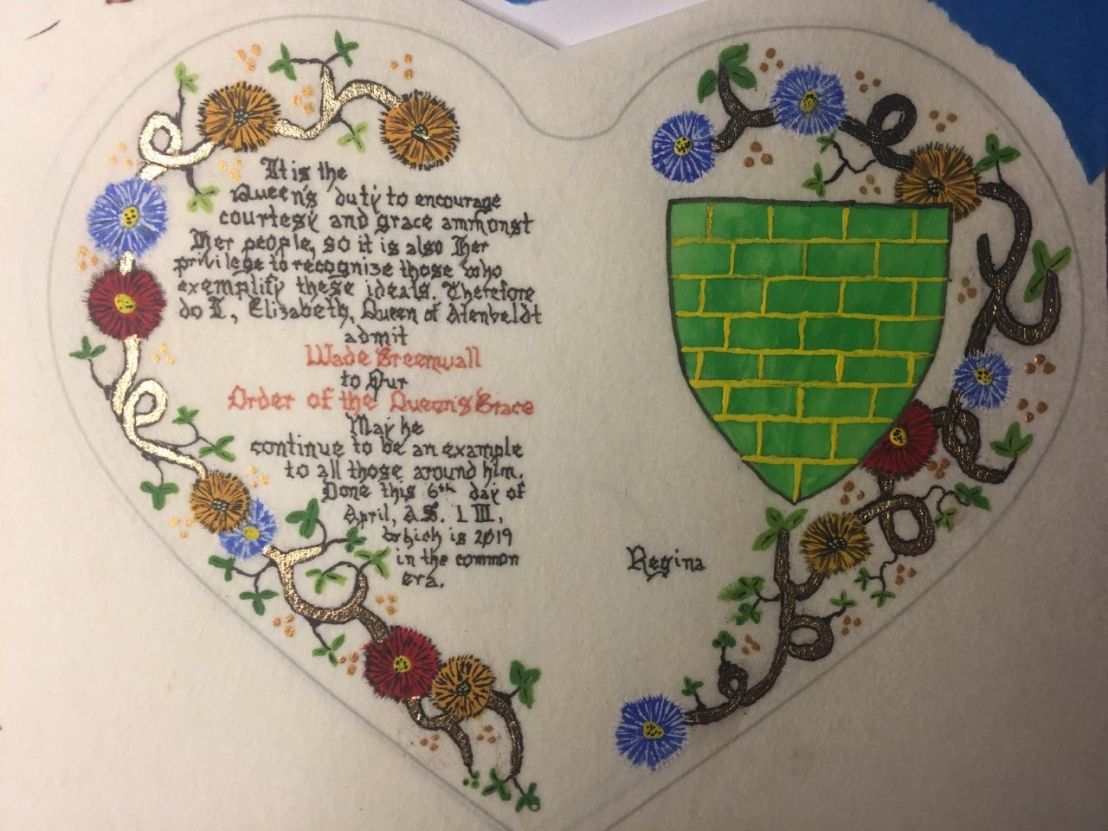 It is the
Queen's duty to encourage
courtesy and grace ammonst
Her people, so it is also Her
privilege to recognize those who
exemplify these ideals. Therefore
do I, Elizabeth, Queen of Atenveldt
admit
Wade Greenwall
to Our
Order of the Queen's Grace
May he
continue to be an example
to all those around him.
Done this 6th day of
April, A.S. LIII,
which is 2019
in the common
era.
Regina